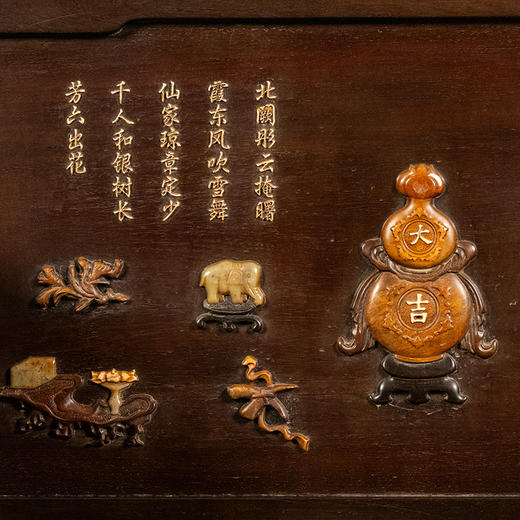 北阙彤云掩曙
霞东风吹雪舞
仙家琼章定少
千人和银树长
芳六出花
大
吉